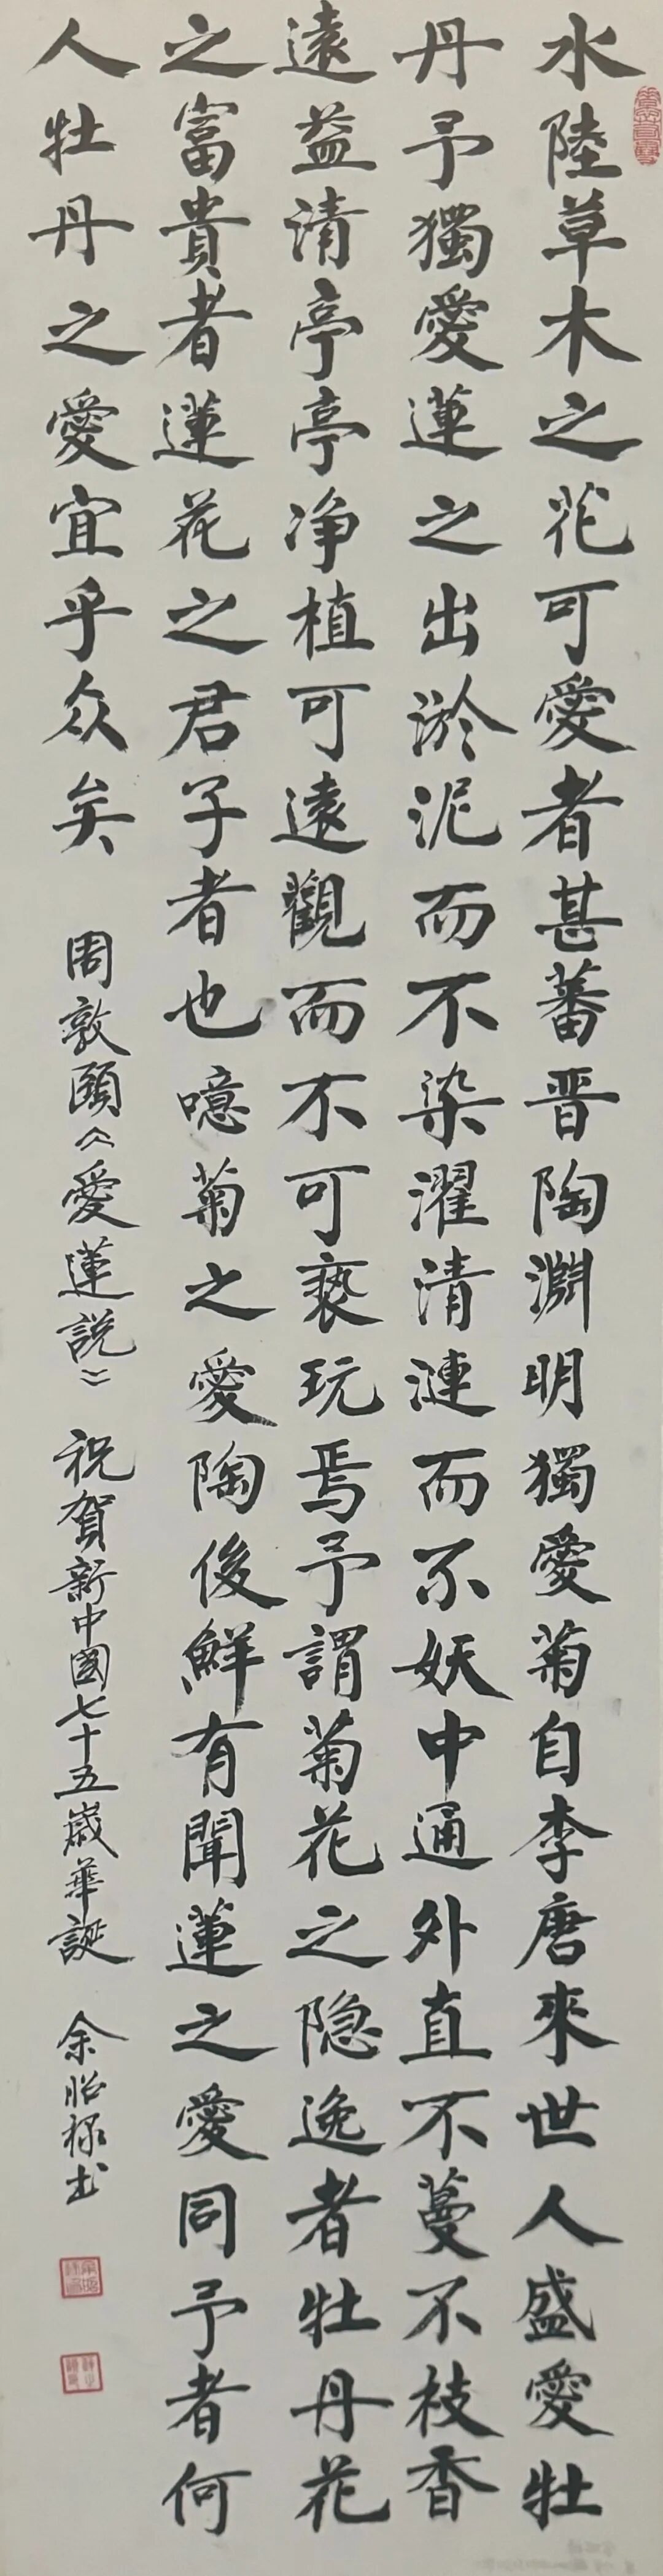 水陸草木之花可愛者甚蕃晋陶淵明獨愛菊自李唐來世人盛愛牡
丹予獨愛蓮之出淤泥而不染濯清漣而不妖中通外直不蔓不枝香
遠益清亭亭净植可遠觀而不可褻玩焉予謂菊花之隐逸者牡丹花
之富貴者蓮花之君子者也噫菊之愛陶後鮮有聞蓮之愛同予者何
人牡丹之愛宜乎众矣 周敦頤《愛蓮説》 祝賀新中國七十五歲華誕 余昭祿书